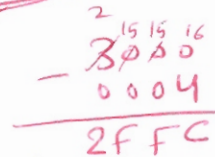 2 15 15 16
3000
- 0004
2FFC